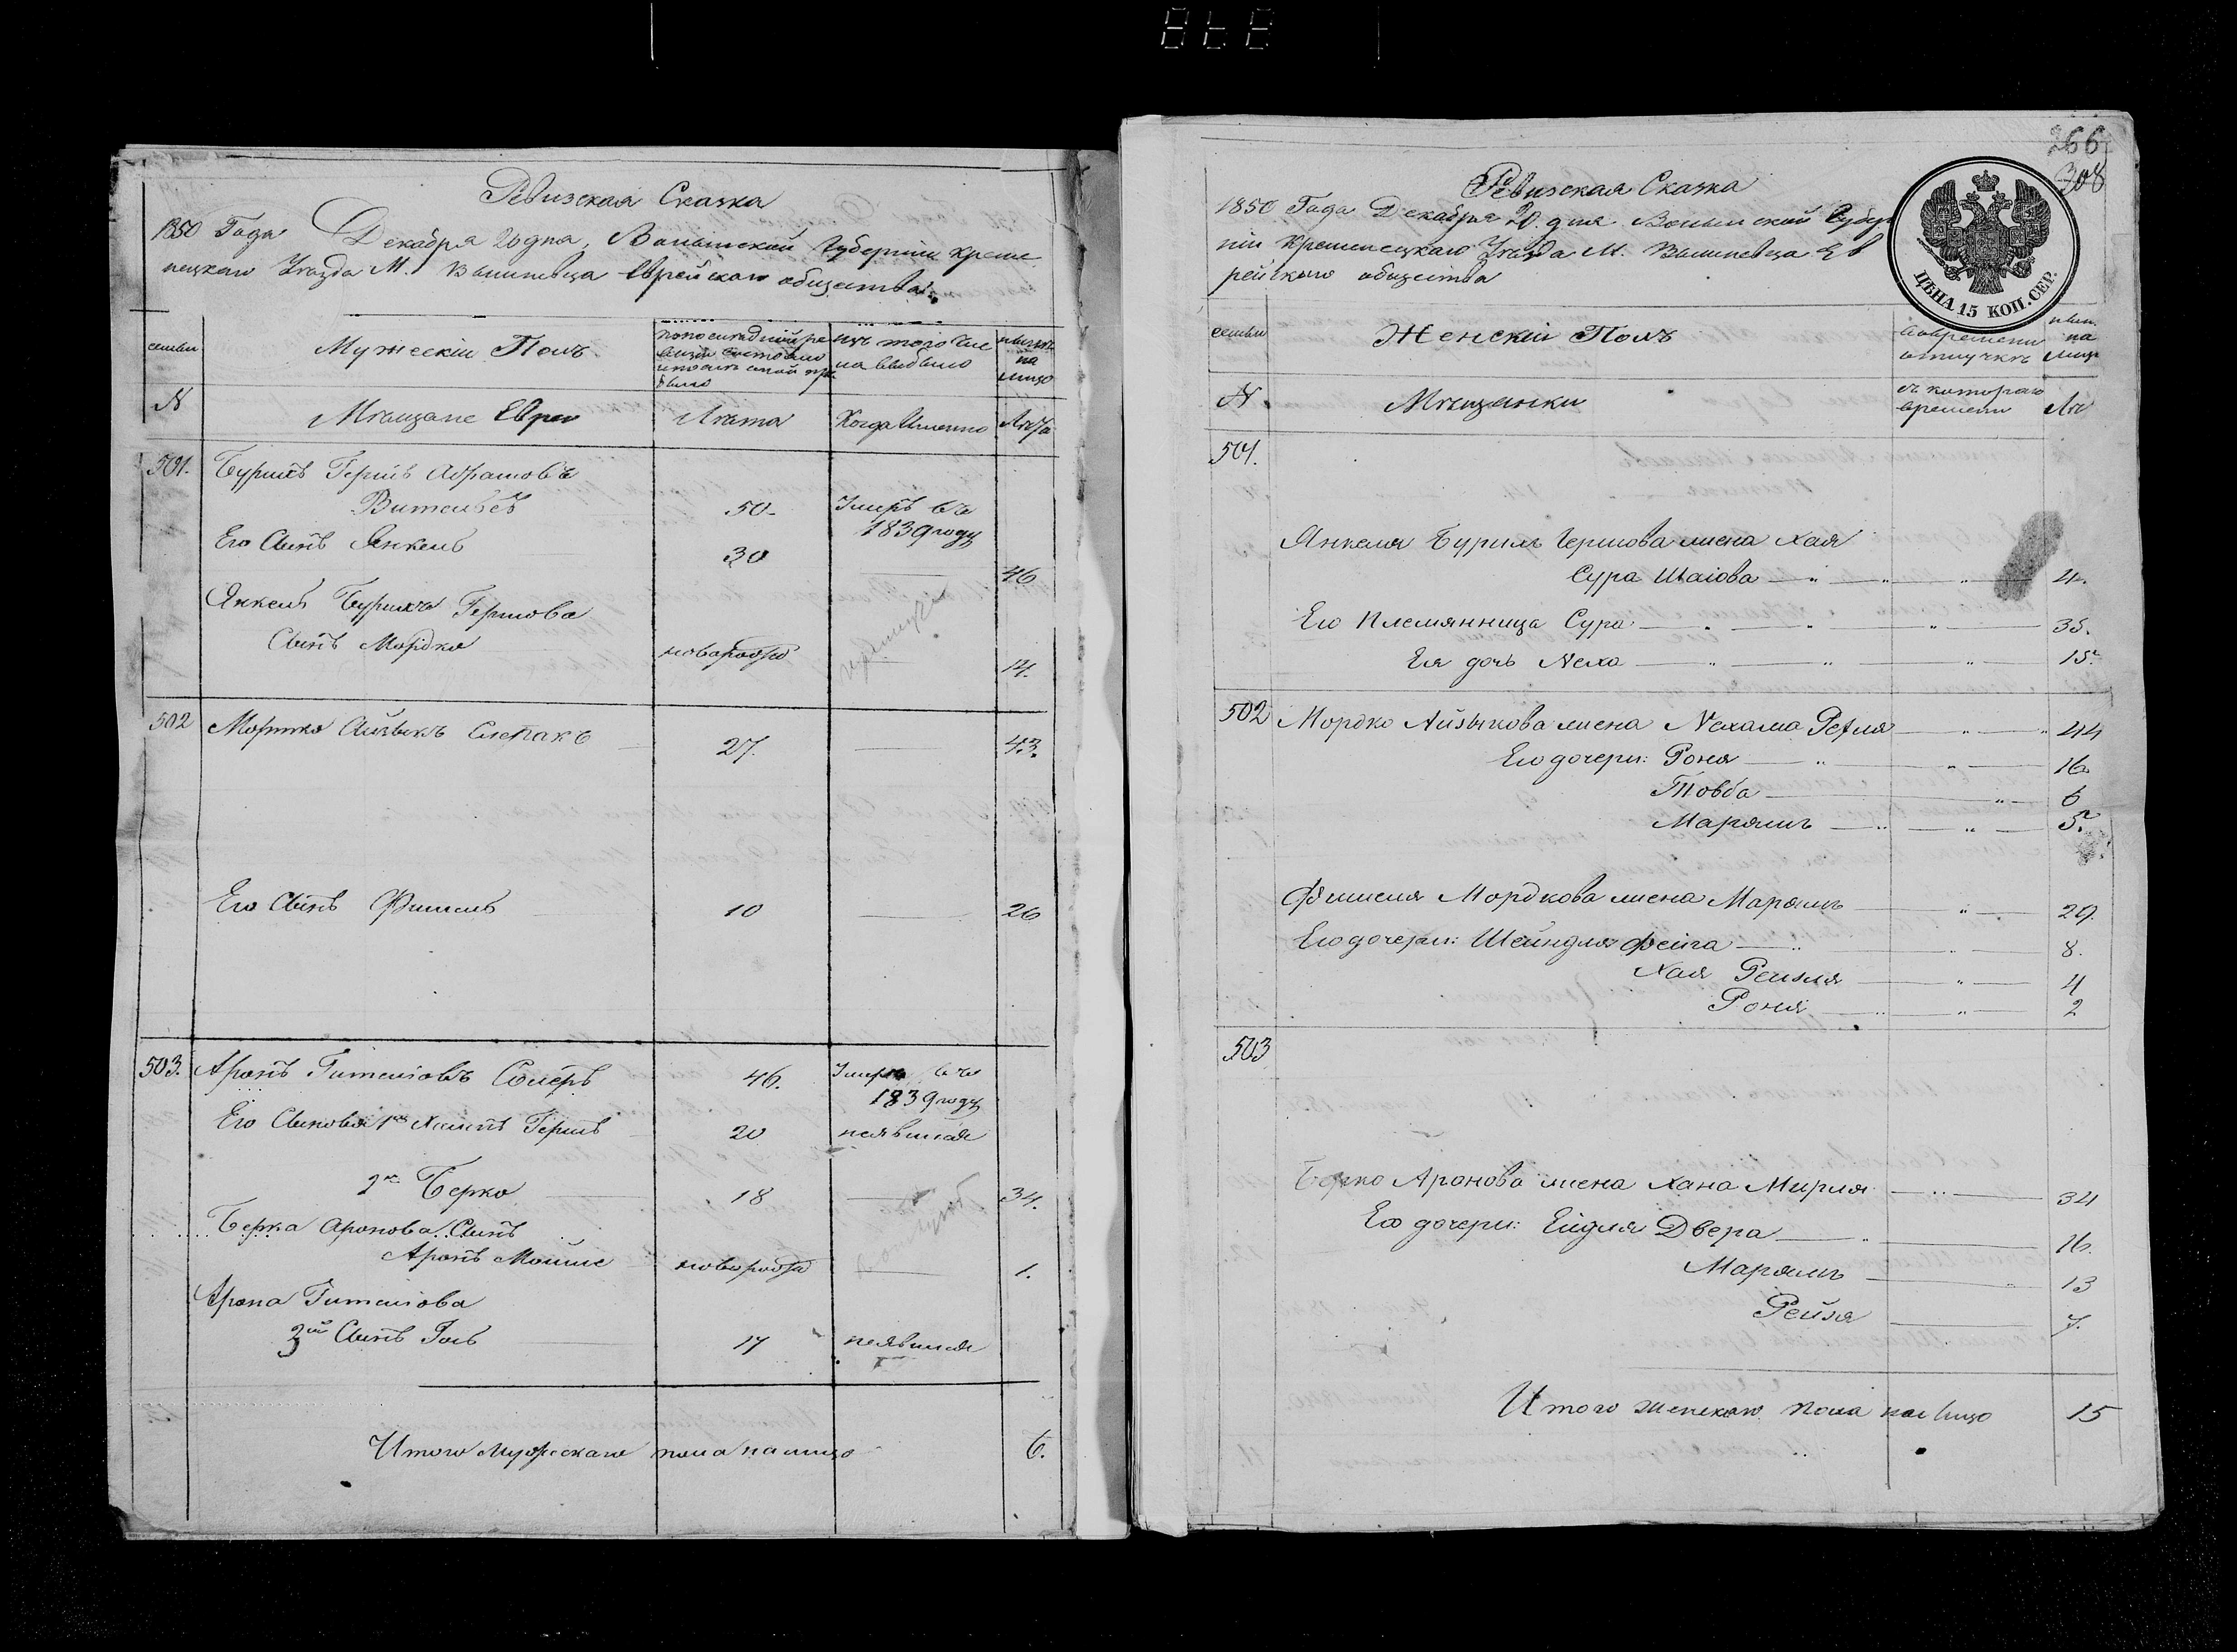 Ревизская Сказка
1850 Года Декабря 20 дня, Волынской Губернии Креме
нецкаго Уѣзда М. Вишневца Еврейскаго общества.
семьи
Мужескій Полъ
по последней ре
визіи состояло
и послѣ оной при
было
изъ того чис
ла выбыло
нынѣ
на
лицо
N
Мѣщане Евреи
Лѣта
Когда Именно
Лѣта
501.
Абрамовъ
50.
Умеръ въ
1839 году
Его Сынъ Янкель
30
46
Янкеля Гершова
Сынъ Мордко
новорожд
14.
502
Айзыкъ Слепакъ
27.
43.
Его Сынъ Фишель
10
26
503.
Аронъ
46.
Умеръ въ
1839 году
Его Сыновья 1й Хаимъ Гершъ
20
неявился
2й Берко
18
34.
Берка Аронова Сынъ
Аронъ Мошко
новорожд
1.
Арона
3й Сынъ
17
неявился
Итого мужескаго пола на лицо
6.
266
308
Ревизская Сказка
1850 Года Декабря 20. дня Волынской Губер
ніи Кременецкаго Уѣзда М. Вишневца Ев
рейскаго общества
ЦѢНА 15 КОП. СЕР.
семьи
Женскій Полъ
во временной
отлучкѣ
нын.
на
лицо
N.
Мѣщанки
съ котораго
времени
Лѣ
501.
Янкеля Гершова жена Хая
Сура Шаіова
Его Племянница Сура
35.
Ея дочь Неха
15.
502
Мордко Айзыкова жена Нехама Рейзля
44
Его дочери: Роня
16.
Товба
6
Марьямъ
5.
Фишеля Мордкова жена Марьямъ
29.
Его дочери: Шейндля Фейга
8.
Хая Рейзля
4
Роня
2
503
Берко Аронова жена Хана Мирля
34
Его дочери: Ейдля Двера
16.
Марьямъ
13
Рейзя
7.
Итого женскаго пола на лицо
15